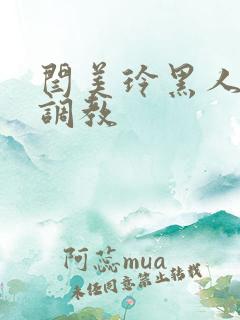 閆美玲黑人
調教
阿蕊mua
未经同意禁止转载